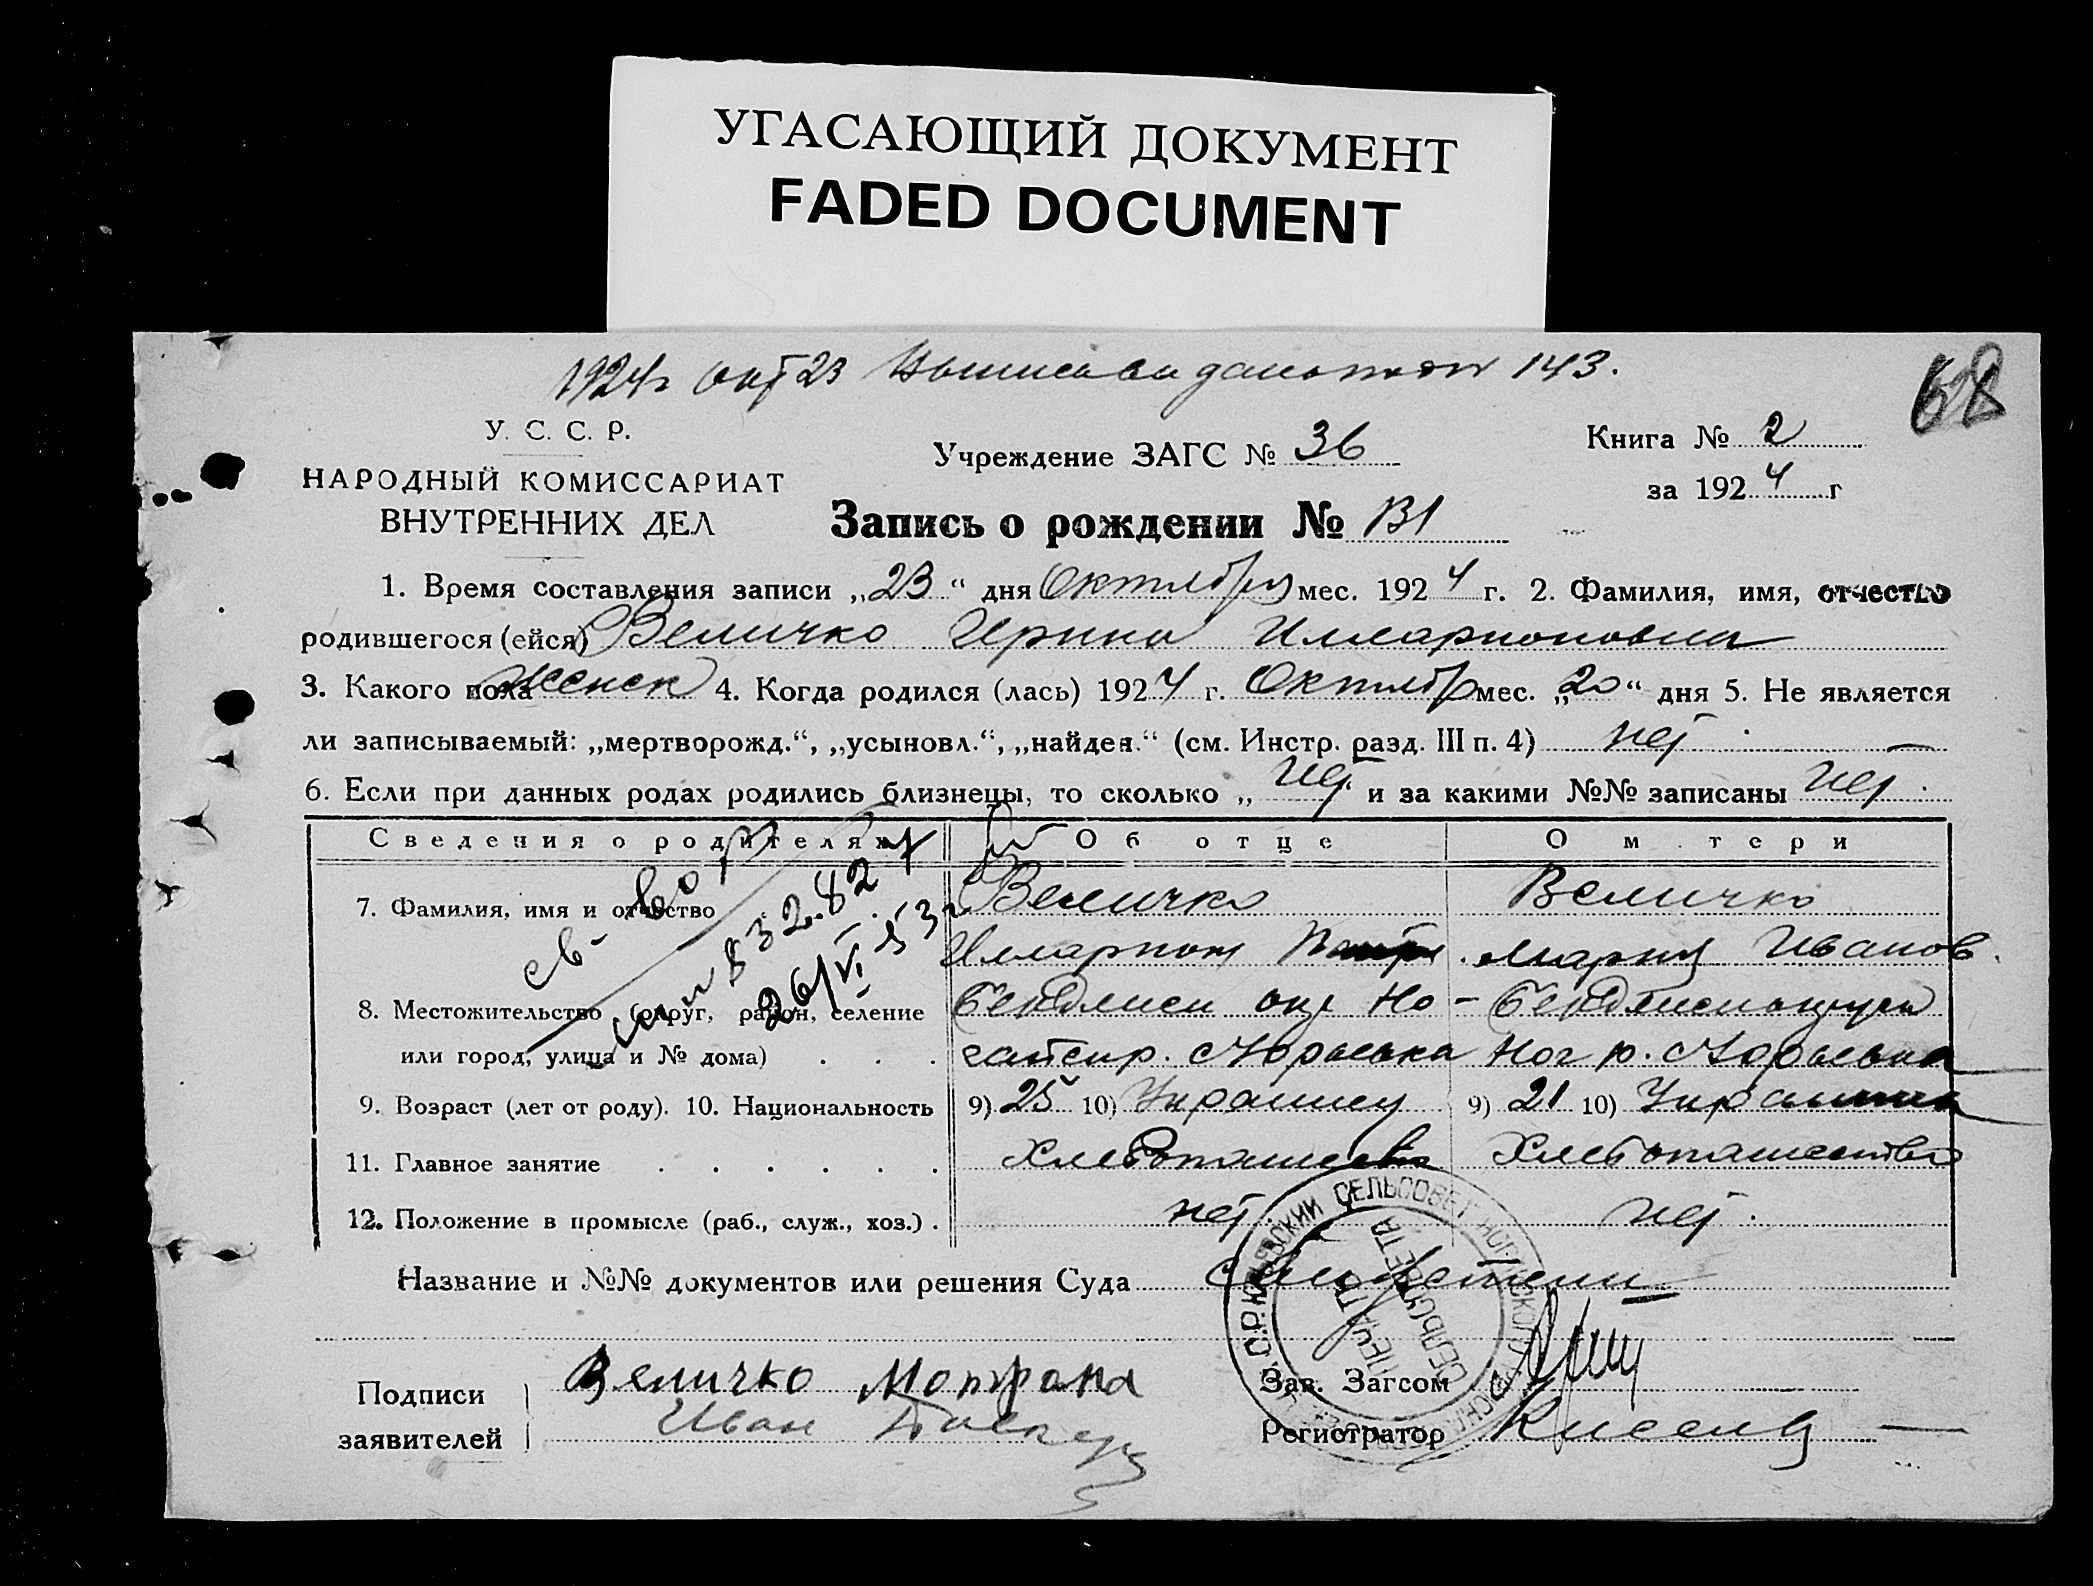 УГАСАЮЩИЙ ДОКУМЕНТ
FADED DOCUMENT
1924 г окт 23 143.
68
У. С. С. Р.
НАРОДНЫЙ КОМИССАРИАТ
ВНУТРЕННИХ ДЕЛ
Учреждение ЗАГС № 36
Книга № 2
за 1924 г
Запись о рождении №
1. Время составления записи „23“ дня Октября мес. 1924 г. 2. Фамилия, имя, отчество
родившегося (ейся) Величко Ирина Илларионовна
3. Какого пола женск 4. Когда родился (лась) 1924 г. Октябр мес. „20“ дня 5. Не является
ли записываемый: „мертворожд.“, „усыновл.“, „найден.“ (см. Инстр. разд. III п. 4) нет
6. Если при данных родах родились близнецы, то сколько „ нет и за какими №№ записаны нет.
Сведения о родителях Об отце О м тери
7. Фамилия, имя и отчество Величко Величко
Илларион Мария Иванов.
8. Местожительство (округ, район, селение Бердянск окр Но- Бердянск округа
или город, улица и № дома) гайск р. с Юрьевка Ног р. с Юрьевка
9. Возраст (лет от роду). 10. Национальность 9) 25 10) Украинец 9) 21 10) Украинка
11. Главное занятие Хлебопашество Хлебопашество
12. Положение в промысле (раб., служ., хоз.) . нет. нет.
св-во
26/VI 53 г
Название и №№ документов или решения Суда
Подписи заявителей
Величко Мотрона
Иван
Зав. Загсом
Регистратор Кисель
СЕЛЬСОВЕТ